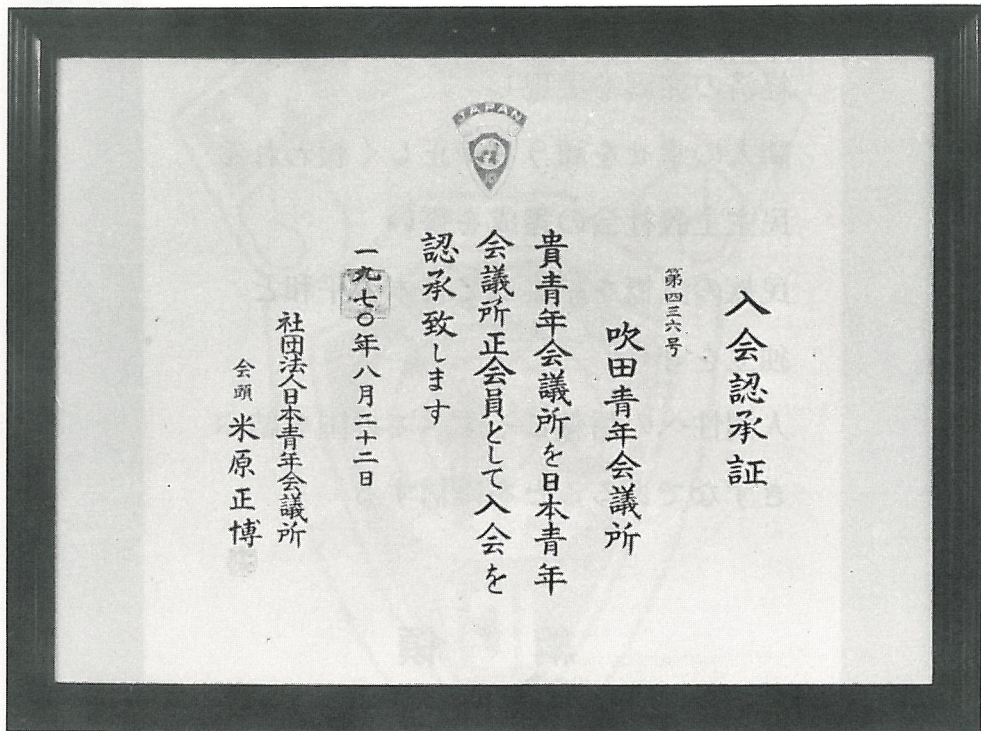 JAPAN
入会認承証
第四三六号
吹田青年会議所
貴青年会議所を日本青年
会議所正会員として入会を
認承致します
一九七〇年八月二十二日
社団法人日本青年会議所
会頭 米原正博